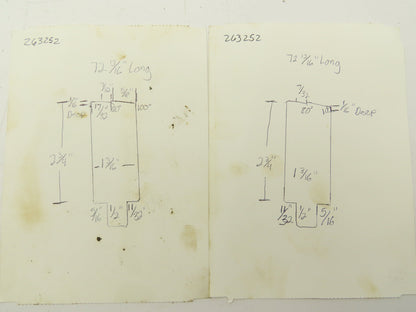 263252
72 13/16" Long
7/32 5/16"
1/16" Deep
17/32 20° 100°
2 3/4"
1 3/16"
5/16" 1/2" 11/32"
263252
72 13/16" Long
7/32
20°
1/16" Deep
2 3/4"
1 3/16"
11/32" 1/2" 5/16"